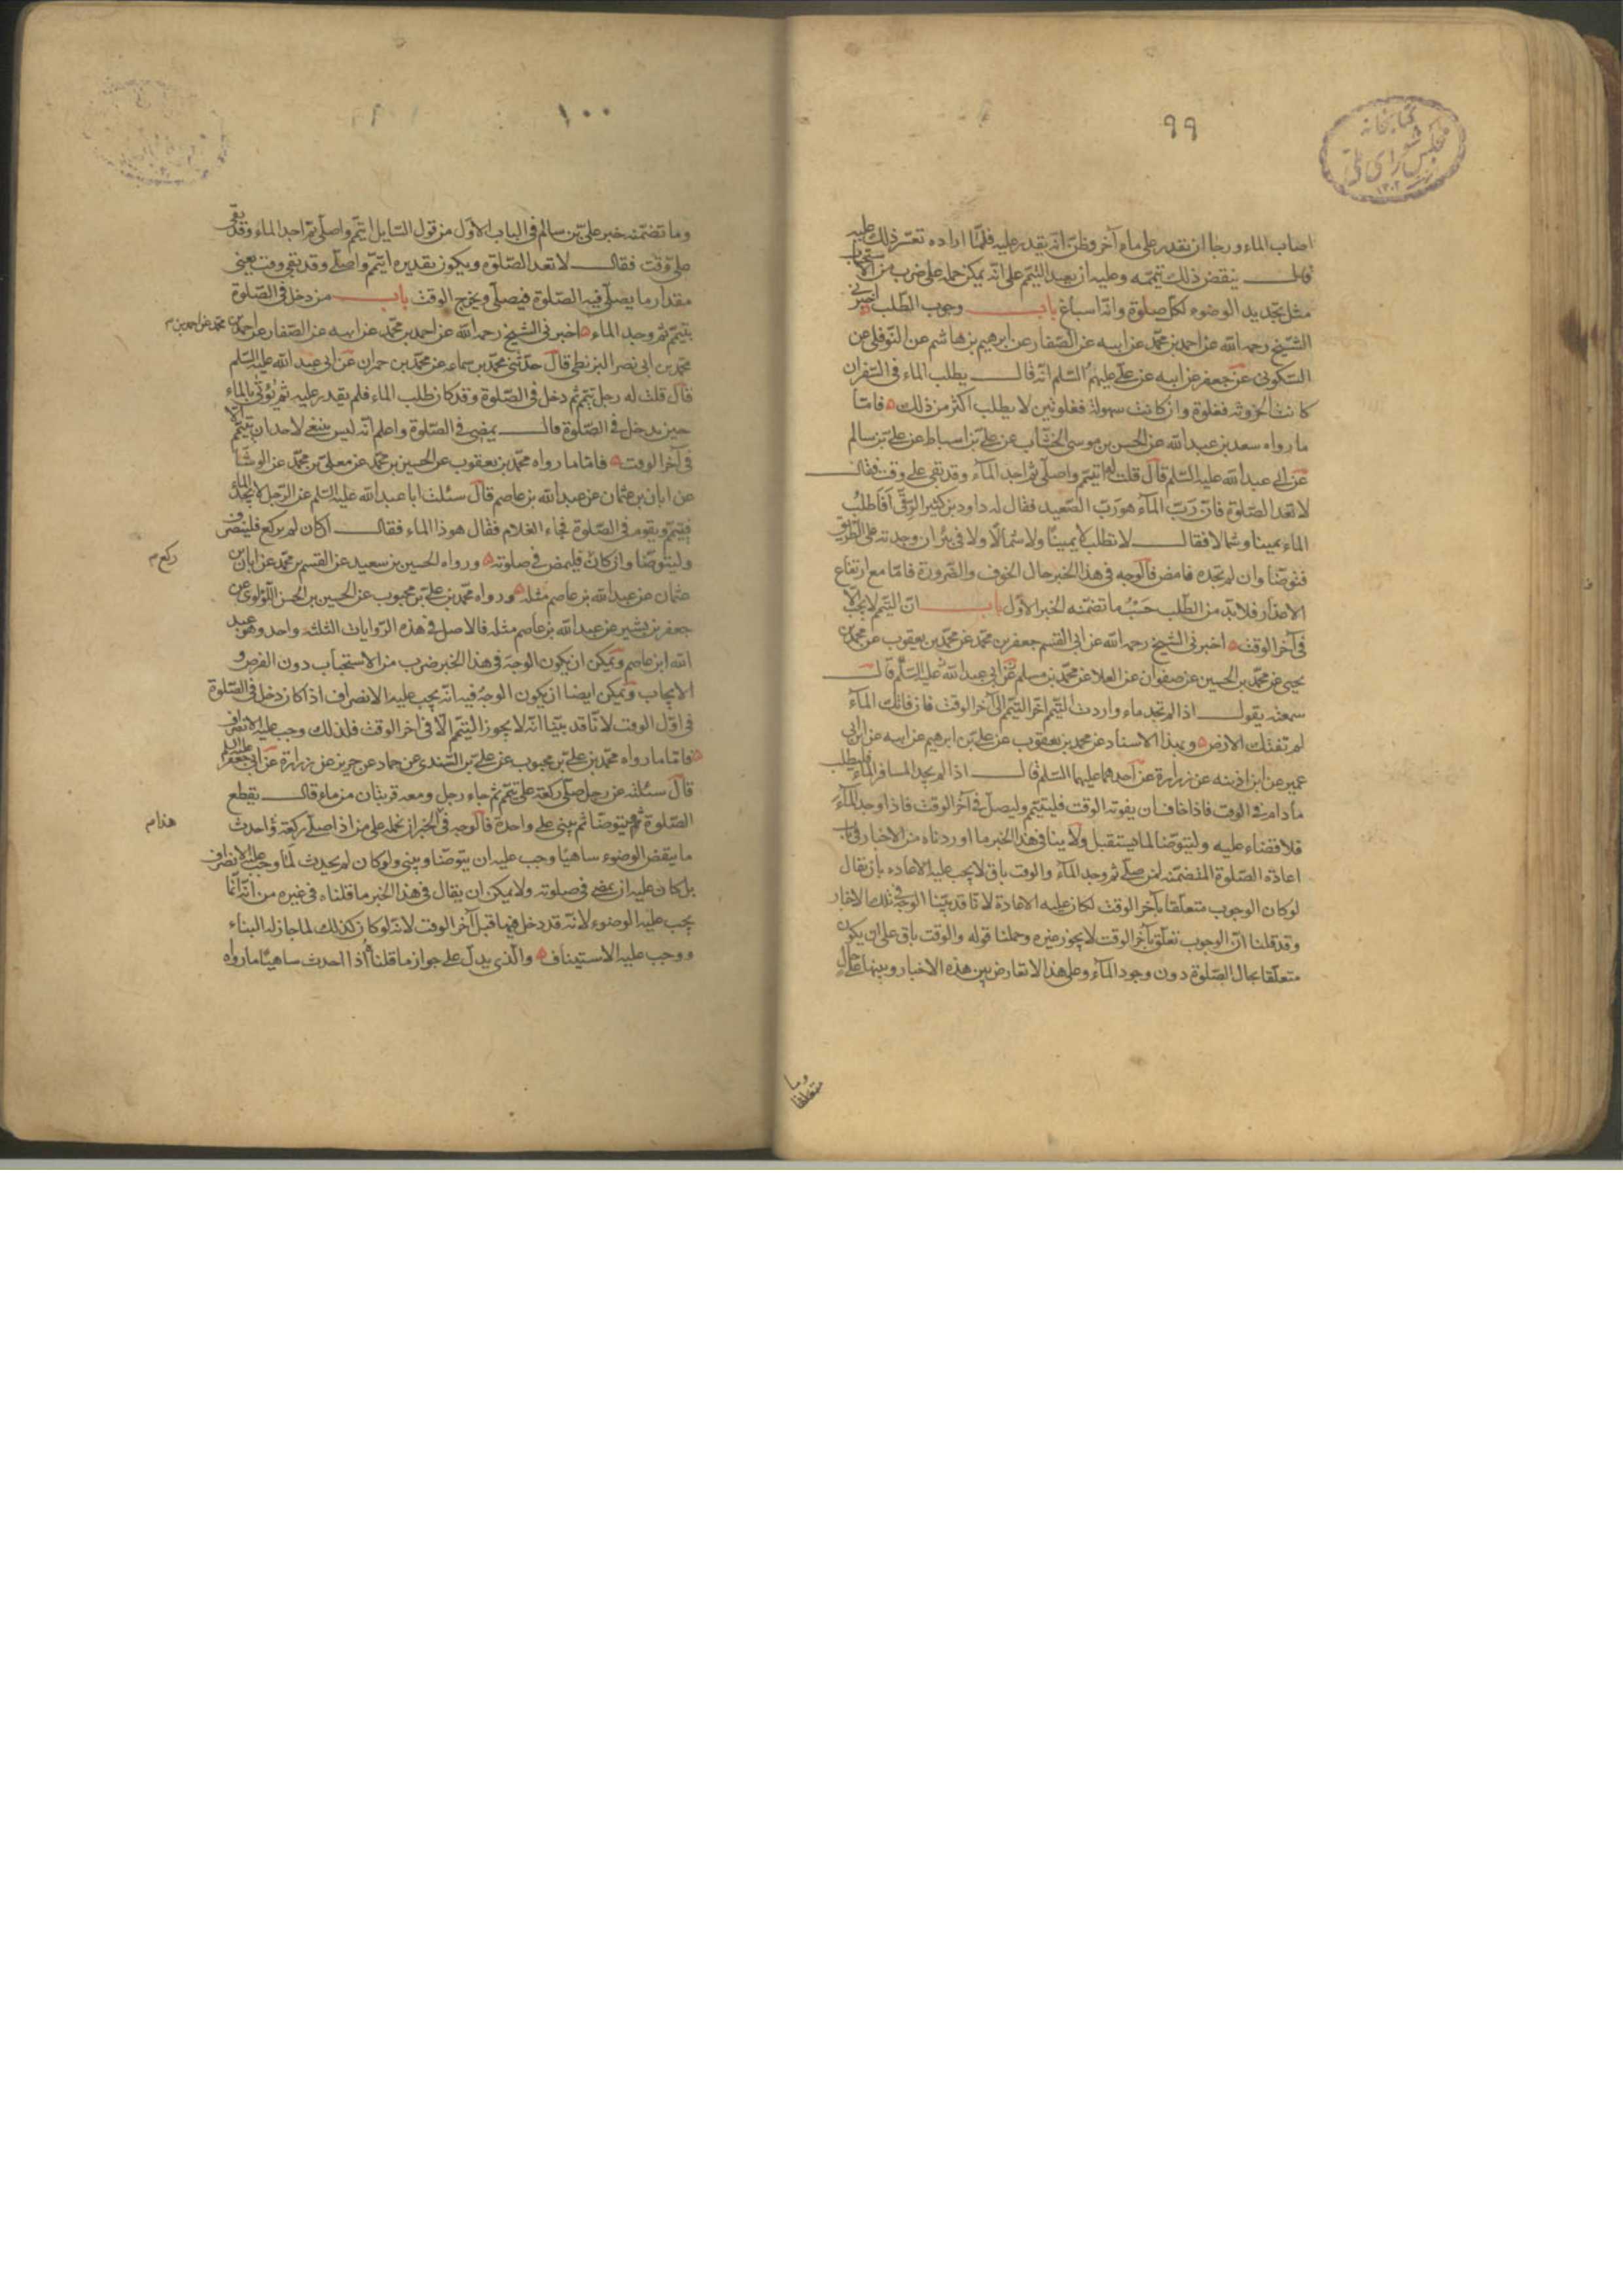 ٩٩
كتابخانه
مجلس شورای ملی
١٣٠٢
اصاب الماء ورجا ان يقدر على ماء آخر وظنّ انّه يقدر عليه فلمّا اراده تعسّر ذلك عليه
قال ينقض ذلك تيمّمه وعليه ان يعيد التيمّم على انّه يمكن حمله على ضرب من الاستحباب
مثل تجديد الوضوء لكلّ صلوة وانّه اسباغ باب وجوب الطّلب اخبرنى
الشّيخ رحمه الله عن احمد بن محمّد عن ابيه عن الصّفار عن ابرهيم بن هاشم عن النّوفلى عن
السّكونى عن جعفر عن ابيه عن على عليهم السّلم انّه قال يطلب الماء فى السّفر ان
كانت الحزونة فغلوة وان كانت سهولة فغلوتين لا يطلب اكثر من ذلك فامّا
ما رواه سعد بن عبد الله عن الحسن بن موسى الخشّاب عن علىّ بن اسباط عن علىّ بن سالم
عن ابى عبد الله عليه السّلم قال قلت له اتيمّم واصلّى ثمّ اجد المآء وقد بقى على وقت فقال
لا تعد الصّلوة فانّ ربّ المآء هو ربّ الصّعيد فقال له داود بن كثير الرقّى أفأطلب
الماء يمينا وشمالا فقال لا تطلب لا يمينًا ولا شمالًا ولا فى بئر ان وجدته على الطّريق
فتوضّأ وان لم تجده فامض فالوجه فى هذا الخبر حال الخوف والضّرورة فامّا مع ارتفاع
الاعذار فلا بدّ من الطّلب حسب ما تضمّنه الخبر الاوّل باب انّ التيمّم لا يجب الّا
فى آخر الوقت اخبرنى الشّيخ رحمه الله عن ابى القسم جعفر بن محمّد عن محمّد بن يعقوب عن محمّد بن
يحيى عن محمّد بن الحسين عن صفوان عن العلا عن محمّد بن مسلم عن ابى عبد الله عليه السّلم قال
سمعته يقول اذا لم تجد ماء واردت التيمّم اخّر التيمّم الى آخر الوقت فان فاتك المآء
لم تفتك الارض وبهذا الاسناد عن محمد بن يعقوب عن علىّ بن ابرهيم عن ابيه عن ابن ابى
عمير عن ابن اذينه عن زرارة عن احدهما عليهما السّلم قال اذا لم يجد المسافر الماء فليطلب
مادام فى الوقت فاذا خاف ان يفوته الوقت فليتيمّم وليصلّ فى آخر الوقت فاذا وجد المآء
فلا قضاء عليه وليتوضّأ لما يستقبل ولا ينافى هذا الخبر ما اوردناه من الاخبار فى باب
اعادة الصّلوة المتضمّنه لمن صلّى ثم وجد المآء والوقت باق لا يجب عليه الاعاده بان يقال
لو كان الوجوب متعلّقا بآخر الوقت لكان عليه الاعادة لانّا قد بيّنا الوجه فى تلك الاخبار
وقد قلنا انّ الوجوب تعلّق بآخر الوقت لا يجوز غيره وحملنا قوله والوقت باق على ان يكون
متعلّقا بحال الصّلوة دون وجود المآء وعلى هذا لا تعارض بين هذه الاخبار وبينها على حال
وما
متعلقا
١٠٠
وما تضمّنه خبر علىّ بن سالم فى الباب الاوّل من قول السّايل اتيمّم واصلّى ثمّ اجد الماء وقد بقى
علىّ وقت فقال لا تعد الصّلوة ويكون تقديره اتيمّم واصلّى وقد بقى وقت يعنى
مقدار ما يصلّى فيه الصّلوة فيصلّى ويخرج الوقت باب من دخل فى الصّلوة
بتيمّم ثم وجد الماء اخبرنى الشيخ رحمه الله عن احمد بن محمّد عن ابيه عن الصّفار عن احمد بن
محمّد عن احمد بن م
محمّد بن ابى نصر البزنطى قال حدّثنى محمّد بن سماعه عن محمّد بن حمران عن ابى عبد الله عليه السّلم
قال قلت له رجل تيمّم ثم دخل فى الصّلوة وقد كان طلب الماء فلم يقدر عليه ثمّ يؤتى بالماء
حين يدخل فى الصّلوة قال يمضى فى الصّلوة واعلم انّه ليس ينبغى لاحد ان يتيمّم الّا
فى آخر الوقت فامّا ما رواه محمّد بن يعقوب عن الحسين بن محمّد عن معلّى بن محمّد عن الوشّا
عن ابان بن عثمان عن عبد الله بن عاصم قال سئلت ابا عبد الله عليه السّلم عن الرّجل لا يجد الماء
فيتيمّم ويقوم فى الصّلوة فجاء الغلام فقال هوذا الماء فقال ان كان لم يركع فلينصرف
وليتوضّأ وان كان فليمض فى صلوته ورواه الحسين بن سعيد عن القسم بن محمّد عن ابان بن
ركع م
عثمان عن عبد الله بن عاصم مثله ورواه محمّد بن علىّ بن محبوب عن الحسين بن الحسن اللّؤلؤى عن
جعفر بن بشير عن عبد الله بن عاصم مثله فالاصل فى هذه الرّوايات الثلثة واحد وهو عبد
الله ابن عاصم ويمكن ان يكون الوجه فى هذا الخبر ضرب من الاستحباب دون الفرض و
الايجاب ويمكن ايضا ان يكون الوجه فيه انّه يجب عليه الانصراف اذا كان دخل فى الصّلوة
فى اوّل الوقت لانّا قد بيّنا انّه لا يجوز التيمّم الّا فى آخر الوقت فلذلك وجب عليه الانصراف
فامّا ما رواه محمّد بن علىّ بن محبوب عن علىّ بن السّندى عن حماد عن حريز عن زرارة عن ابى جعفر عليه السلم
قال سئلته عن رجل صلّى ركعة على تيمّم ثم جاء رجل ومعه قربتان من ماء قال يقطع
الصّلوة ويتوضّأ ثم يبنى على واحدة فالوجه فى الخبر ان نحمله على من اذا صلّى ركعة واحدث
هذا م
ما ينقض الوضوء ساهيًا وجب عليه ان يتوضّأ ويبنى ولو كان لم يحدث لما وجب عليه الانصراف
بل كان عليه ان يمضى فى صلوته ولا يمكن ان يقال فى هذا الخبر ما قلناه فى غيره من انّه انّما
يجب عليه الوضوء لانّه قد دخل فيها قبل آخر الوقت لانّه لو كان كذلك لما جاز له البناء
ووجب عليه الاستيناف والّذى يدلّ على جواز ما قلناه اذا احدث ساهيًا ما رواه